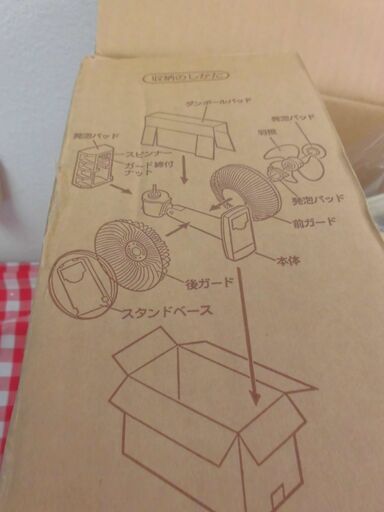 収納のしかた
ダンボールパッド
発泡パッド
羽根
発泡パッド
スピンナー
ガード締付
ナット
発泡パッド
前ガード
本体
後ガード
スタンドベース